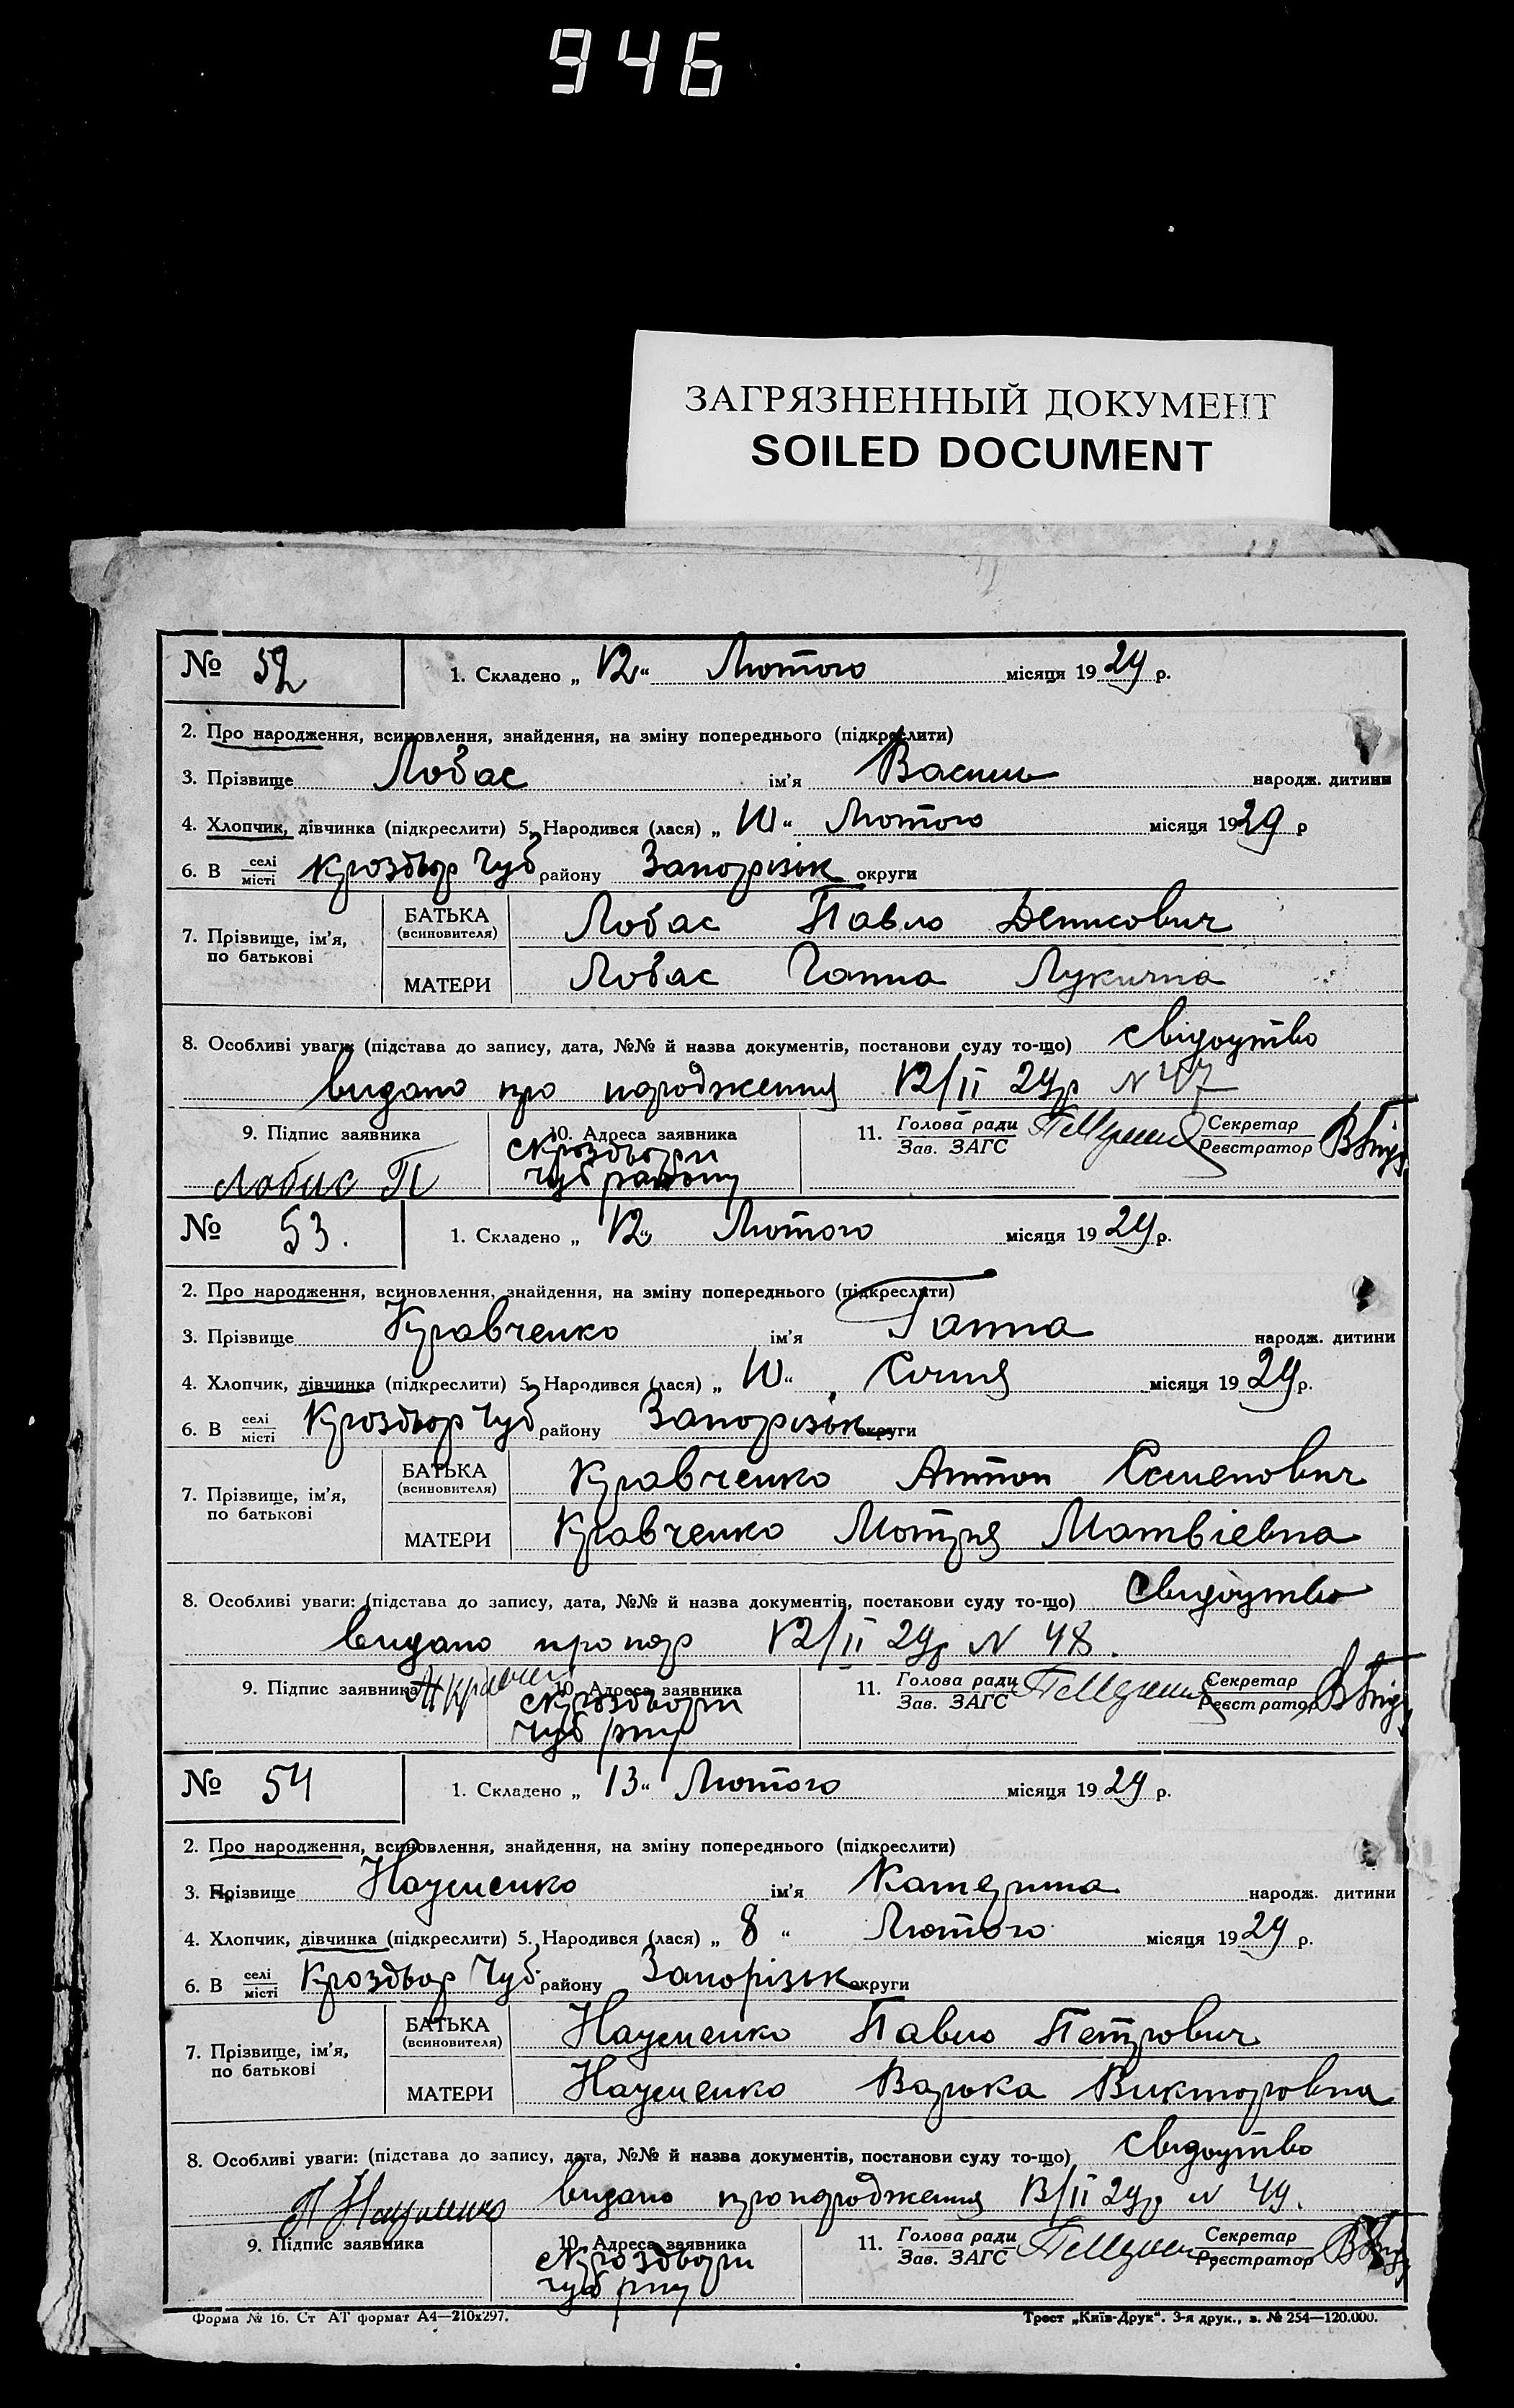 946
ЗАГРЯЗНЕННЫЙ ДОКУМЕНТ
SOILED DOCUMENT
№ 52 1. Складено „ 12 “ Лютого місяця 1929 р.
2. Про народження, всиновлення, знайдення, на зміну попереднього (підкреслити)
3. Прізвище Лобас ім'я Василь народж. дитини
4. Хлопчик, дівчинка (підкреслити) 5. Народився (лася) „ 10 “ Лютого місяця 1929 р
6. В селі місті Кроздвор Чуб району Запорізьк округи
7. Прізвище, ім'я, по батькові БАТЬКА (всиновителя) Лобас Павло Денисович
МАТЕРИ Лобас Ганна Лукична
8. Особливі уваги: (підстава до запису, дата, №№ й назва документів, постанови суду то-що) свідоцтво
видано про народження 12/II 29р N 47
9. Підпис заявника 10. Адреса заявника 11. Голова ради Секретар
Зав. ЗАГС Реєстратор
Лобас П Чуб району
№ 53. 1. Складено „ 12 “ Лютого місяця 1929 р.
2. Про народження, всиновлення, знайдення, на зміну попереднього (підкреслити)
3. Прізвище Кравченко ім'я Ганна народж. дитини
4. Хлопчик, дівчинка (підкреслити) 5. Народився (лася) „ 10 “ Січня місяця 1929 р.
6. В селі місті Кроздвор Чуб району Запорізьк округи
7. Прізвище, ім'я, по батькові БАТЬКА (всиновителя) Кравченко Антон Семенович
МАТЕРИ Кравченко Мотря Матвієвна
8. Особливі уваги: (підстава до запису, дата, №№ й назва документів, постанови суду то-що) свидоцтво
видано про нар 12/II 29р N 48.
9. Підпис заявника 10. Адреса заявника 11. Голова ради Секретар
Зав. ЗАГС Реєстратор
Чуб рну
№ 54 1. Складено „ 13 “ Лютого місяця 1929 р.
2. Про народження, всиновлення, знайдення, на зміну попереднього (підкреслити)
3. Прізвище Науменко ім'я Катерина народж. дитини
4. Хлопчик, дівчинка (підкреслити) 5. Народився (лася) „ 8 “ Лютого місяця 1929 р.
6. В селі місті Кроздвор Чуб. району Запорізьк округи
7. Прізвище, ім'я, по батькові БАТЬКА (всиновителя) Науменко Павло Петрович
МАТЕРИ Науменко Варька Викторовна
8. Особливі уваги: (підстава до запису, дата, №№ й назва документів, постанови суду то-що) свидоцтво
П Науменко видано про народження 13/II 29р N 49.
9. Підпис заявника 10. Адреса заявника 11. Голова ради Секретар
Зав. ЗАГС Реєстратор
чуб рну
Форма № 16. Ст АТ формат А4—210х297. Трест „Київ-Друк“. 3-я друк., з. № 254—120.000.